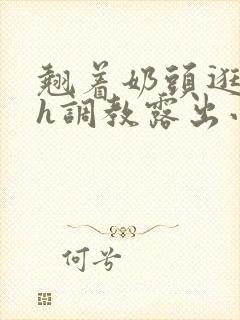 翹着奶頭逛
h調教露出
何兮